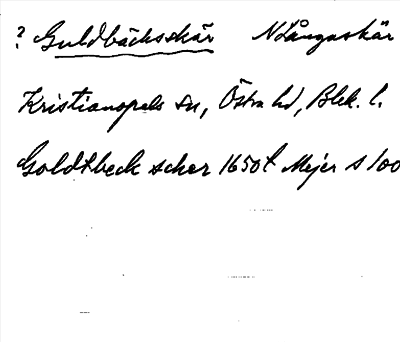 ? Guldbäcksskär N Långaskär
Kristianopels sn, Östra hd, Blek. l.
Goldtbeck scher 1650t Mejer s 100